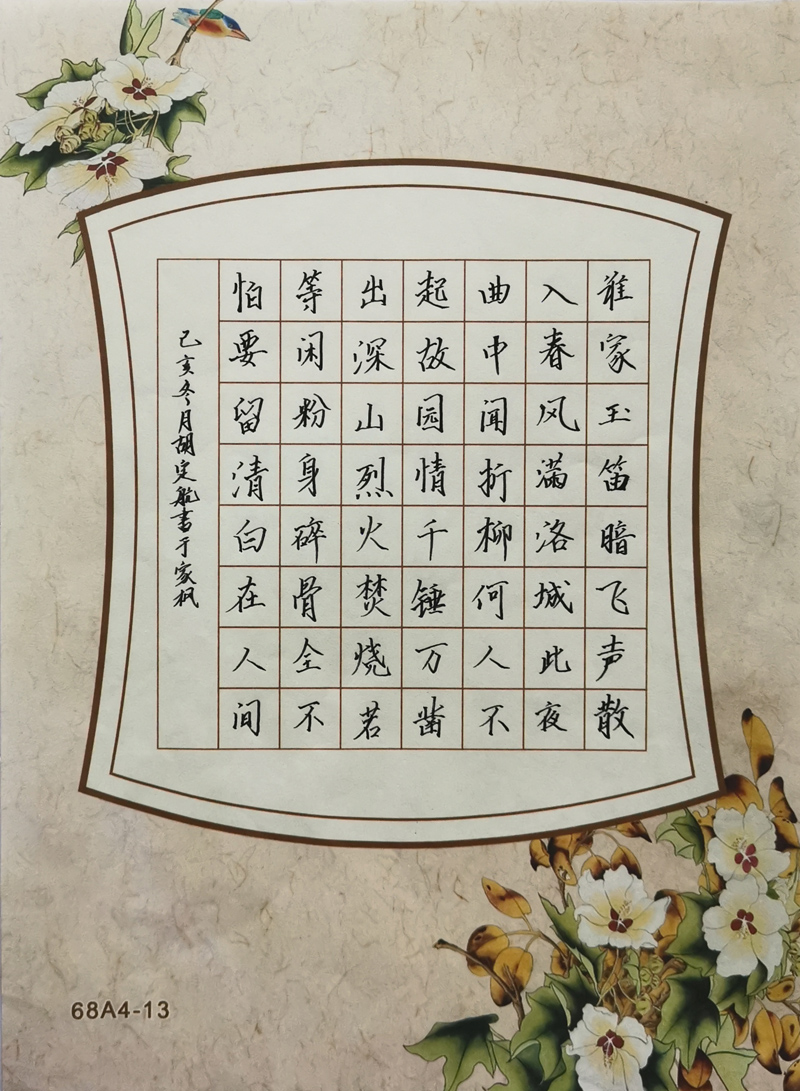 谁家玉笛暗飞声散
入春风满洛城此夜
曲中闻折柳何人不
起故园情千锤万凿
出深山烈火焚烧若
等闲粉身碎骨全不
怕要留清白在人间
己亥冬月胡定航书于家枫
68A4-13